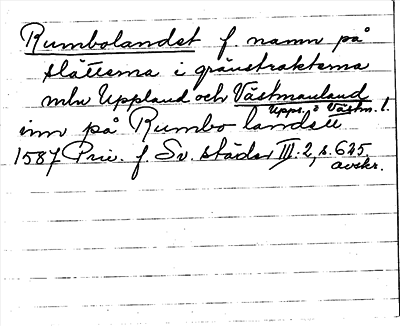 Rumbolandet f. namn på
slätterna i gränstrakterna
mln Uppland och Västmanland
Uppl. o Västm. l.
inn på Rumbo landett
1587 Priv. f. Sv. städer III. 2, s. 635.
avskr.